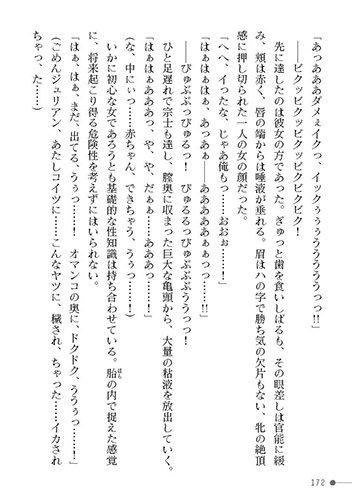 「あっあああダメぇイクっ、イックぅぅうううううっっ!!」
――ビクッビクッビクッビクビク!
先に達したのは彼女の方であった。ぎゅっと歯を食いしばるも、その眼差しは官能に緩
み、頬は赤く、唇の端からは唾液が垂れる。眉はハの字で勝ち気の欠片もない、牝の絶頂
感に押し切られた一人の女の顔だった。
「へへ、イったな、じゃあ俺もっ……おおぉ……!」
「はぁはぁはぁ、あっあぁ――ああああぁぁっっ……!!」
――びゅぶぶっびゅるっ! びゅるるっびゅぶぶうぅっ!
ひと足遅れで宗士も達し、膣奥に収まった巨大な亀頭から、大量の粘液を放出していく。
「はぁはぁあああっ、や、や、だぁぁ……あああっ……!」
(な、中にぃっ……赤ちゃん、できちゃう、うぅっ……!)
いかに初心な女であろうとも基礎的な性知識は持ち合わせている。胎の内で捉えた感覚
に、将来起こり得る危険性を考えずにはいられない。
「はぁ、はぁ、まだ、出てる、うぅっ……! オマンコの奥に、ドクドク、ううぅっ……!」
(ごめんジュリアン、あたしコイツに……こんなヤツに、穢され、ちゃった……イカされ
ちゃっ、た……)
はら
172